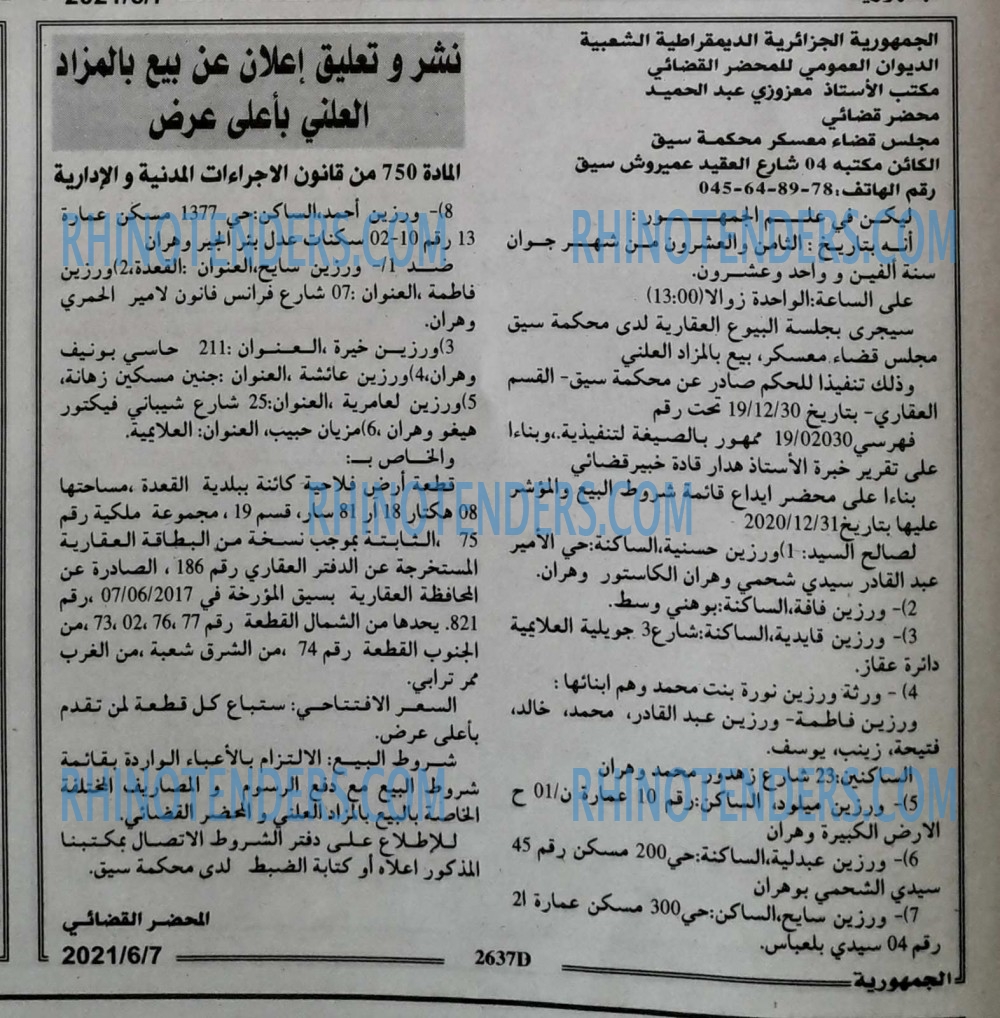 2021/6/7
الجمهورية الجزائرية الديمقراطية الشعبية
الديوان العمومي للمحضر القضائي
مكتب الأستاذ معزوزي عبد الحميد
محضر قضائي
مجلس قضاء معسكر محكمة سيق
الكائن مكتبه 04 شارع العقيد عميروش سيق
رقم الهاتف:78-89-64-045
ليكن في علم الجمهور:
أنه بتاريخ : الثامن والعشرون من شهر جوان
سنة ألفين و واحد وعشرون.
على الساعة:الواحدة زوالا(13:00)
سيجرى بجلسة البيوع العقارية لدى محكمة سيق
مجلس قضاء معسكر، بيع بالمزاد العلني
وذلك تنفيذا للحكم صادر عن محكمة سيق- القسم
العقاري- بتاريخ 19/12/30 تحت رقم
فهرسي 19/02030 ممهور بالصيغة لتنفيذية.،وبناءا
على تقرير خبرة الأستاذ هدار قادة خبيرقضائي
بناءا على محضر ايداع قائمة شروط البيع والمؤشر
عليها بتاريخ2020/12/31
لصالح السيد: 1)ورزين حسنية،الساكنة:حي الأمير
عبد القادر سيدي شحمي وهران الكاستور وهران.
2)- ورزين فافة،الساكنة:بوهني وسط.
3)- ورزين قايدية،الساكنة:شارع3 جويلية العلايمية
دائرة عقاز.
4) - ورثة ورزين نورة بنت محمد وهم ابنائها :
ورزين فاطمة- ورزين عبد القادر، محمد، خالد،
فتيحة، زينب، يوسف.
الساكنين:23 شارع زهدور محمد وهران
5)- ورزين ميلود، الساكن:رقم 10 عمارة ن/01 ح
الارض الكبيرة وهران
6)- ورزين عبدلية،الساكنة:حي200 مسكن رقم 45
سيدي الشحمي بوهران
7)- ورزين سايح،الساكن:حي300 مسكن عمارة 2ا
رقم 04 سيدي بلعباس.
نشر و تعليق إعلان عن بيع بالمزاد
العلني بأعلى عرض
المادة 750 من قانون الاجراءات المدنية و الإدارية
8)- ورزين أحمد،الساكن:حي 1377 مسكن عمارة
13 رقم 10-02 سكنات عدل بئر الجير وهران
ضد 1/- ورزين سايح،العنوان :القعدة،2)ورزين
فاطمة ،العنوان :07 شارع فرانس فانون لامير الحمري
وهران.
3)ورزين خيرة ،العنوان :211 حاسي بونيف
وهران،4)ورزين عائشة ،العنوان :جنين مسكين زهانة،
5)ورزين لعامرية ،العنوان:25 شارع شيباني فيكتور
هيغو وهران ،6)مزيان حبيب، العنوان: العلايمية.
والخاص بـ:
قطعة أرض فلاحية كائنة ببلدية القعدة ،مساحتها
08 هكتار 18 أر 81 سار، قسم 19 ، مجموعة ملكية رقم
75 ،الثابتة بموجب نسخة من البطاقة العقارية
المستخرجة عن الدفتر العقاري رقم 186 ، الصادرة عن
المحافظة العقارية بسيق المؤرخة في 07/06/2017 ،رقم
821. يحدها من الشمال القطعة رقم 77 ،76 ،02 ،73 ،من
الجنوب القطعة رقم 74 ،من الشرق شعبة ،من الغرب
ممر ترابي.
السعر الافتتاحي: ستباع كل قطعة لمن تقدم
بأعلى عرض.
شروط البيع: الالتزام بالأعباء الواردة بقائمة
شروط البيع مع دفع الرسوم و المصاريف المختلفة
الخاصة بالبيع بالمزاد العلني و المحضر القضائي.
للإطلاع على دفتر الشروط الاتصال بمكتبنا
المذكور اعلاه أو كتابة الضبط لدى محكمة سيق.
المحضر القضائي
الجمهورية
2637D
2021/6/7
RHINOTENDERS.COM
RHINOTENDERS.COM
RHINOTENDERS.COM
RHINOTENDERS.COM
RHINOTENDERS.COM